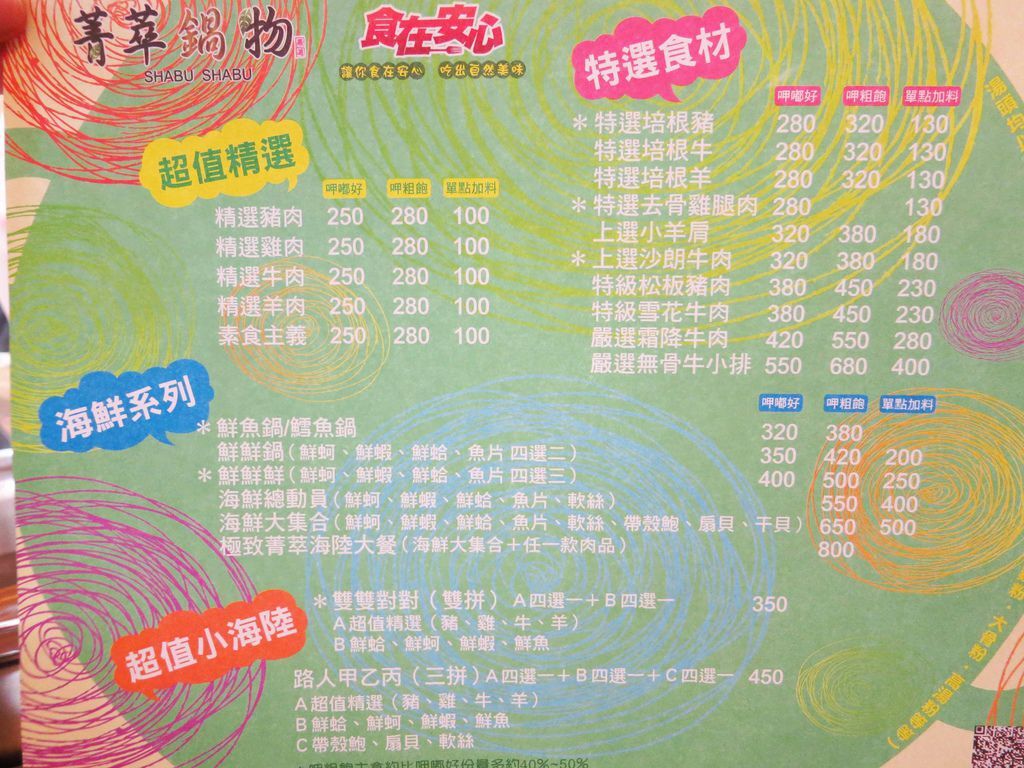 菁萃鍋物
SHABU SHABU
食在安心
讓你食在安心 吃出自然美味
超值精選
呷嘟好 呷粗飽 單點加料
精選豬肉 250 280 100
精選雞肉 250 280 100
精選牛肉 250 280 100
精選羊肉 250 280 100
素食主義 250 280 100
特選食材
呷嘟好 呷粗飽 單點加料
＊特選培根豬 280 320 130
特選培根牛 280 320 130
特選培根羊 280 320 130
＊特選去骨雞腿肉 280 130
上選小羊肩 320 380 180
＊上選沙朗牛肉 320 380 180
特級松板豬肉 380 450 230
特級雪花牛肉 380 450 230
嚴選霜降牛肉 420 550 280
嚴選無骨牛小排 550 680 400
海鮮系列
呷嘟好 呷粗飽 單點加料
＊鮮魚鍋/鱈魚鍋 320 380
鮮鮮鍋（鮮蚵、鮮蝦、鮮蛤、魚片 四選二） 350 420 200
＊鮮鮮鮮（鮮蚵、鮮蝦、鮮蛤、魚片 四選三） 400 500 250
海鮮總動員（鮮蚵、鮮蝦、鮮蛤、魚片、軟絲） 550 400
海鮮大集合（鮮蚵、鮮蝦、鮮蛤、魚片、軟絲、帶殼鮑、扇貝、干貝） 650 500
極致菁萃海陸大餐（海鮮大集合＋任一款肉品） 800
超值小海陸
＊雙雙對對（雙拼）A四選一＋B四選一 350
A超值精選（豬、雞、牛、羊）
B鮮蛤、鮮蚵、鮮蝦、鮮魚
路人甲乙丙（三拼）A四選一＋B四選一＋C四選一 450
A超值精選（豬、雞、牛、羊）
B鮮蛤、鮮蚵、鮮蝦、鮮魚
C帶殼鮑、扇貝、軟絲
呷粗飽主食約比呷嘟好份量多約40%~50%
湯頭均
粉·大骨粉·高湯粉等）